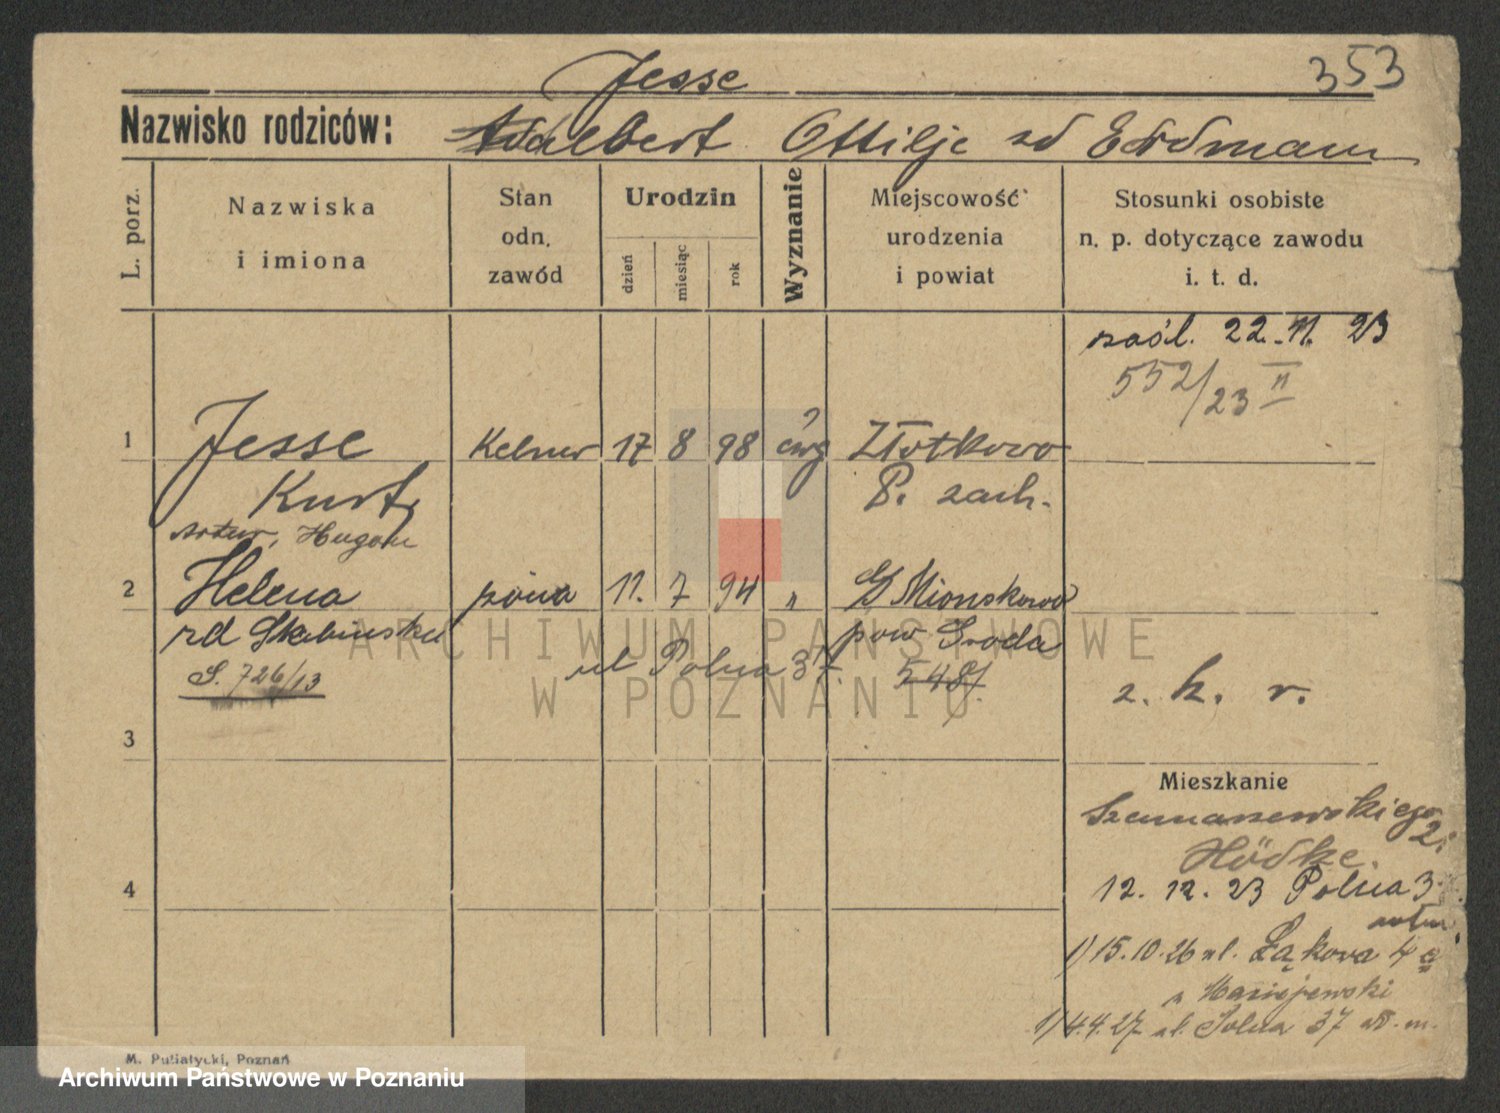 Jesse 353
Nazwisko rodziców: Adalbert Ottilje zd Erdmann
L. porz.
Nazwiska
i imiona
Stan
odn.
zawód
Urodzin
dzień
miesiąc
rok
Wyznanie
Miejscowość
urodzenia
i powiat
Stosunki osobiste
n. p. dotyczące zawodu
i. t. d.
zaśl. 22.11. 23
552/23 II
1 Jesse Kelner 17 8 98 ewg Złotkowo
Kurt, P. zach.
Artur, Hugon
2 Helena żona 11. 7 94 „ Mionskowo
rd Skabinska pow Środa
ul Polna 37. 548/
S. 726/13
z. k. r.
3
Mieszkanie
Szamarzewskiego
2.
Hödke.
4
12. 12. 23 Polna 3
1) 15.10.26 ul. Łąkova 4a
u Maciejewski
1) 4.4.27 ul. Polna 37
M. Putiatycki, Poznań
ARCHIWUM PAŃSTWOWE
W POZNANIU
Archiwum Państwowe w Poznaniu